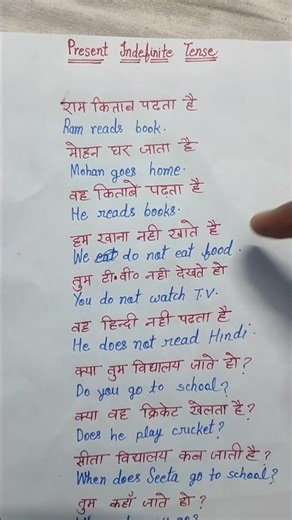 Present Indefinite Tense
राम किताब पढता है
Ram reads book.
मोहन घर जाता है
Mohan goes home.
वह किताबे पढता है
He reads books.
हम खाना नही खाते है
We eat do not eat food.
तुम टी०वी० नही देखते हो
You do not watch T.V.
वह हिन्दी नही पढता है
He does not read Hindi.
क्या तुम विद्यालय जाते हो?
Do you go to school?
क्या वह क्रिकेट खेलता है?
Does he play cricket?
सीता विद्यालय कब जाती है?
When does Seeta go to school?
तुम कहाँ जाते हो?